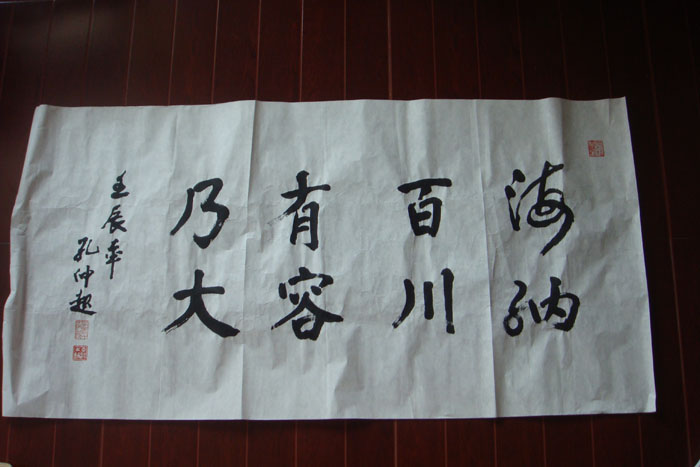 海纳
百川
有容
乃大
壬辰年
孔仲超